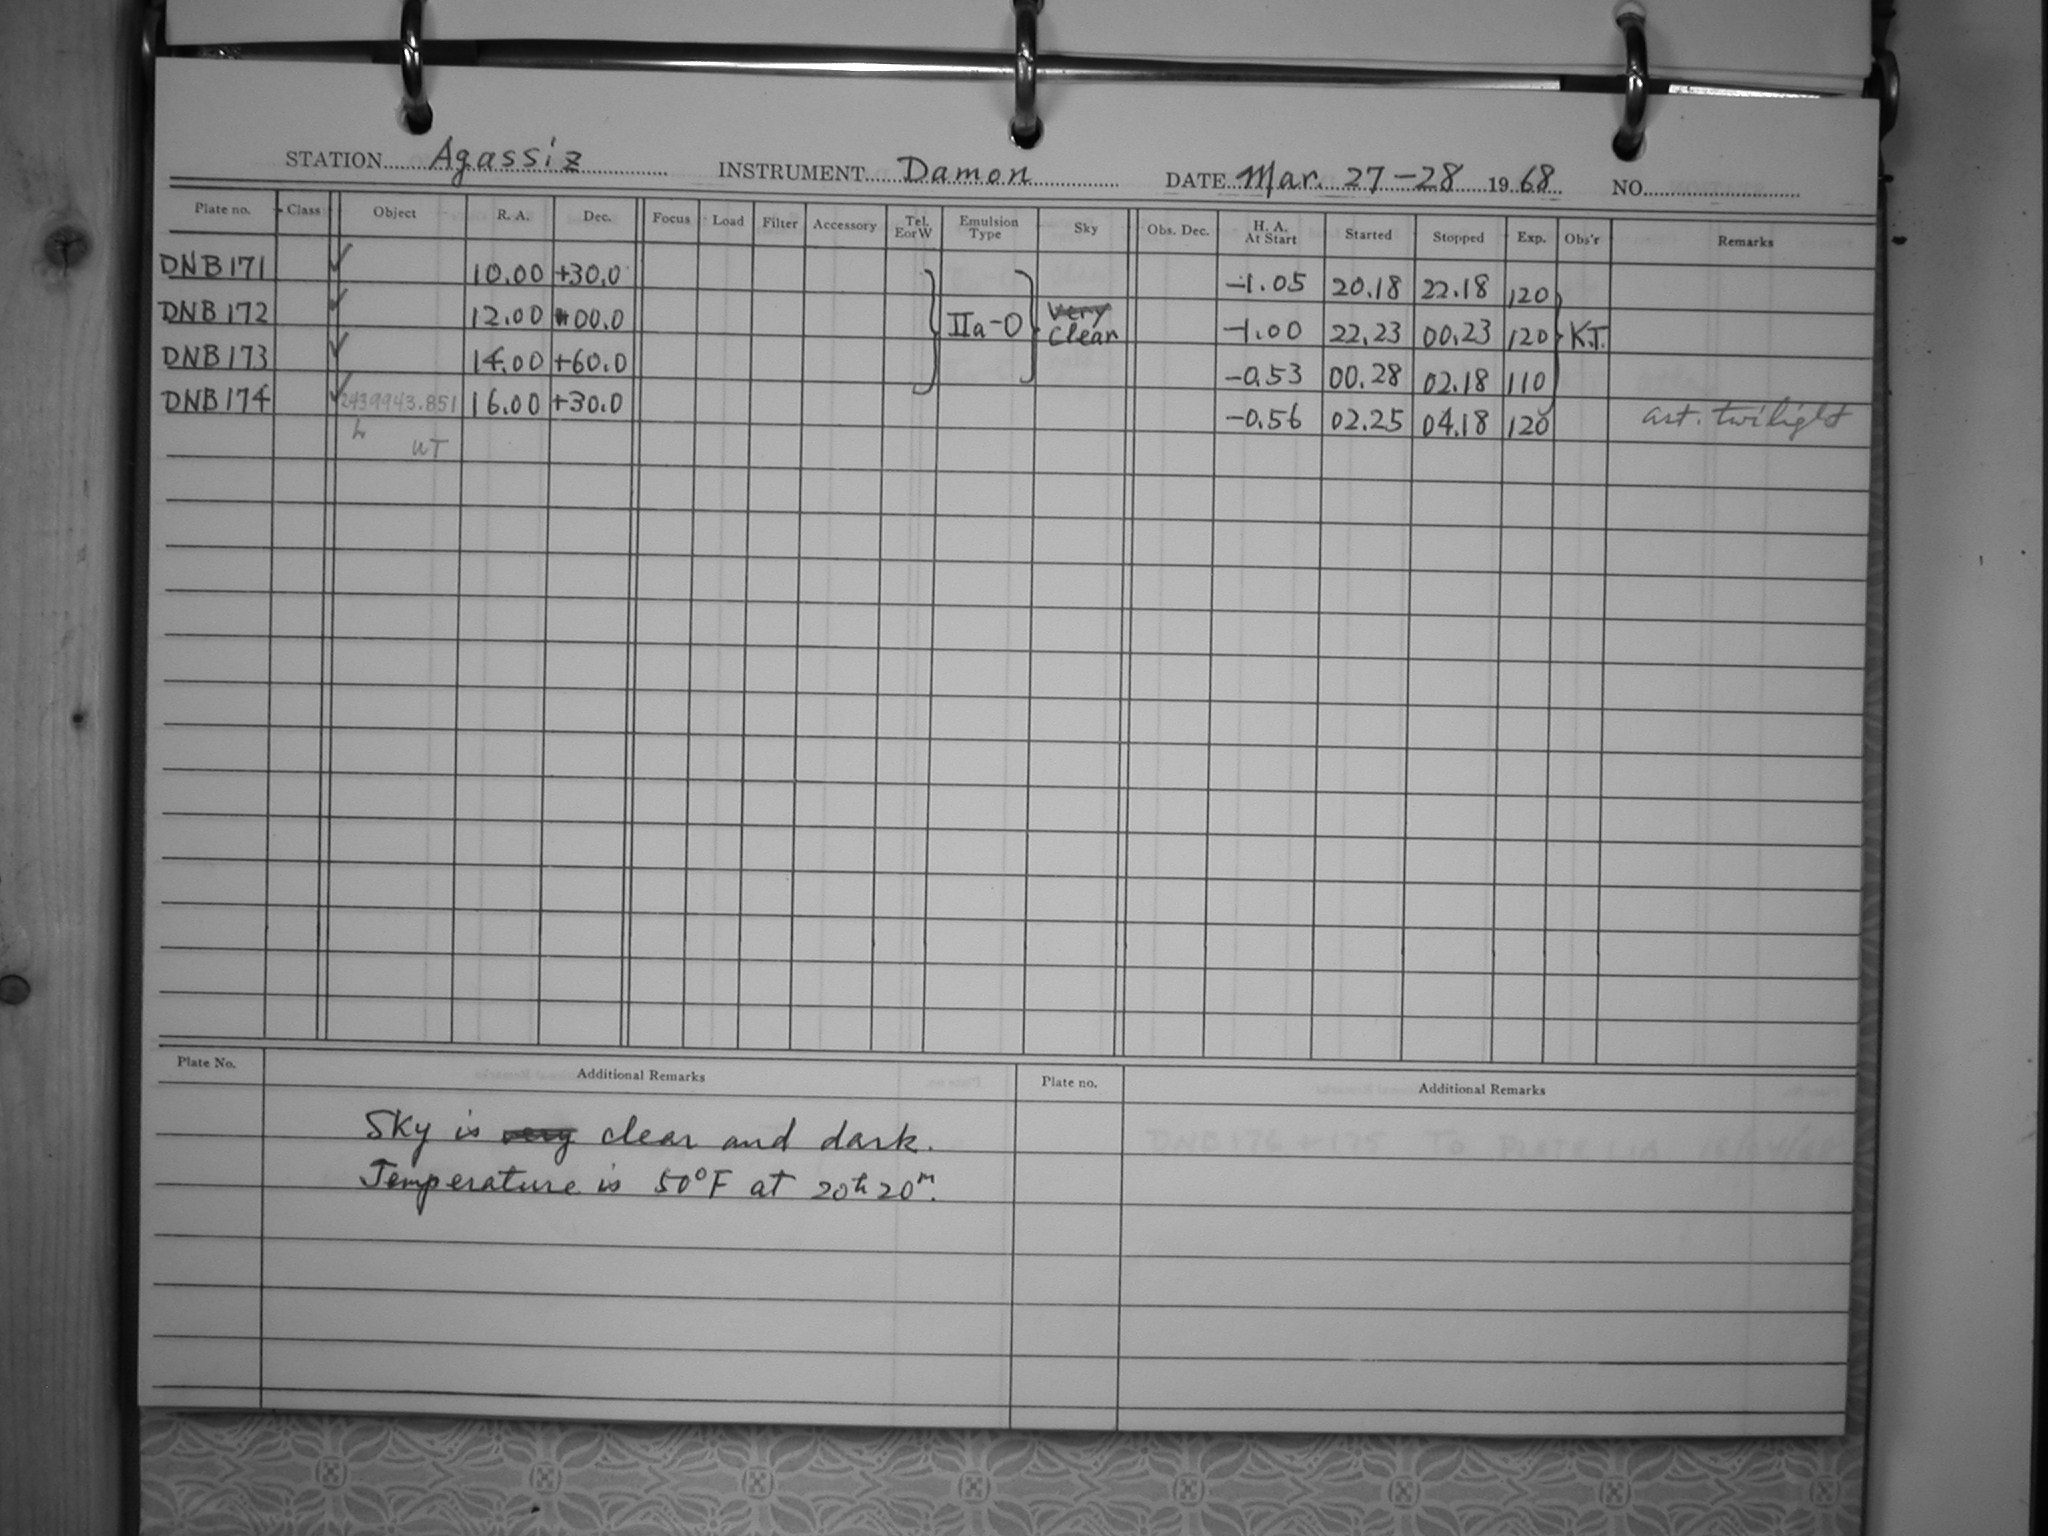 STATION Agassiz INSTRUMENT Damon DATE Mar. 27-28 1968 NO.
Plate no. Class Object R. A. Dec. Focus Load Filter Accessory Tel. E or W Emulsion Type Sky Obs. Dec. H. A. At Start Started Stopped Exp. Obs'r Remarks
DNB171 ✓ 10.00 +30.0 -1.05 20.18 22.18 120
DNB172 ✓ 12.00 00.0 IIa-O very clear -1.00 22.23 00.23 120 K.T.
DNB173 ✓ 14.00 +60.0 -0.53 00.28 02.18 110
DNB174 ✓ 2439943.851 16.00 +30.0 -0.56 02.25 04.18 120 ast. twilight
UT
Plate No. Additional Remarks Plate no. Additional Remarks
Sky is very clear and dark.
Temperature is 50°F at 20h 20m.